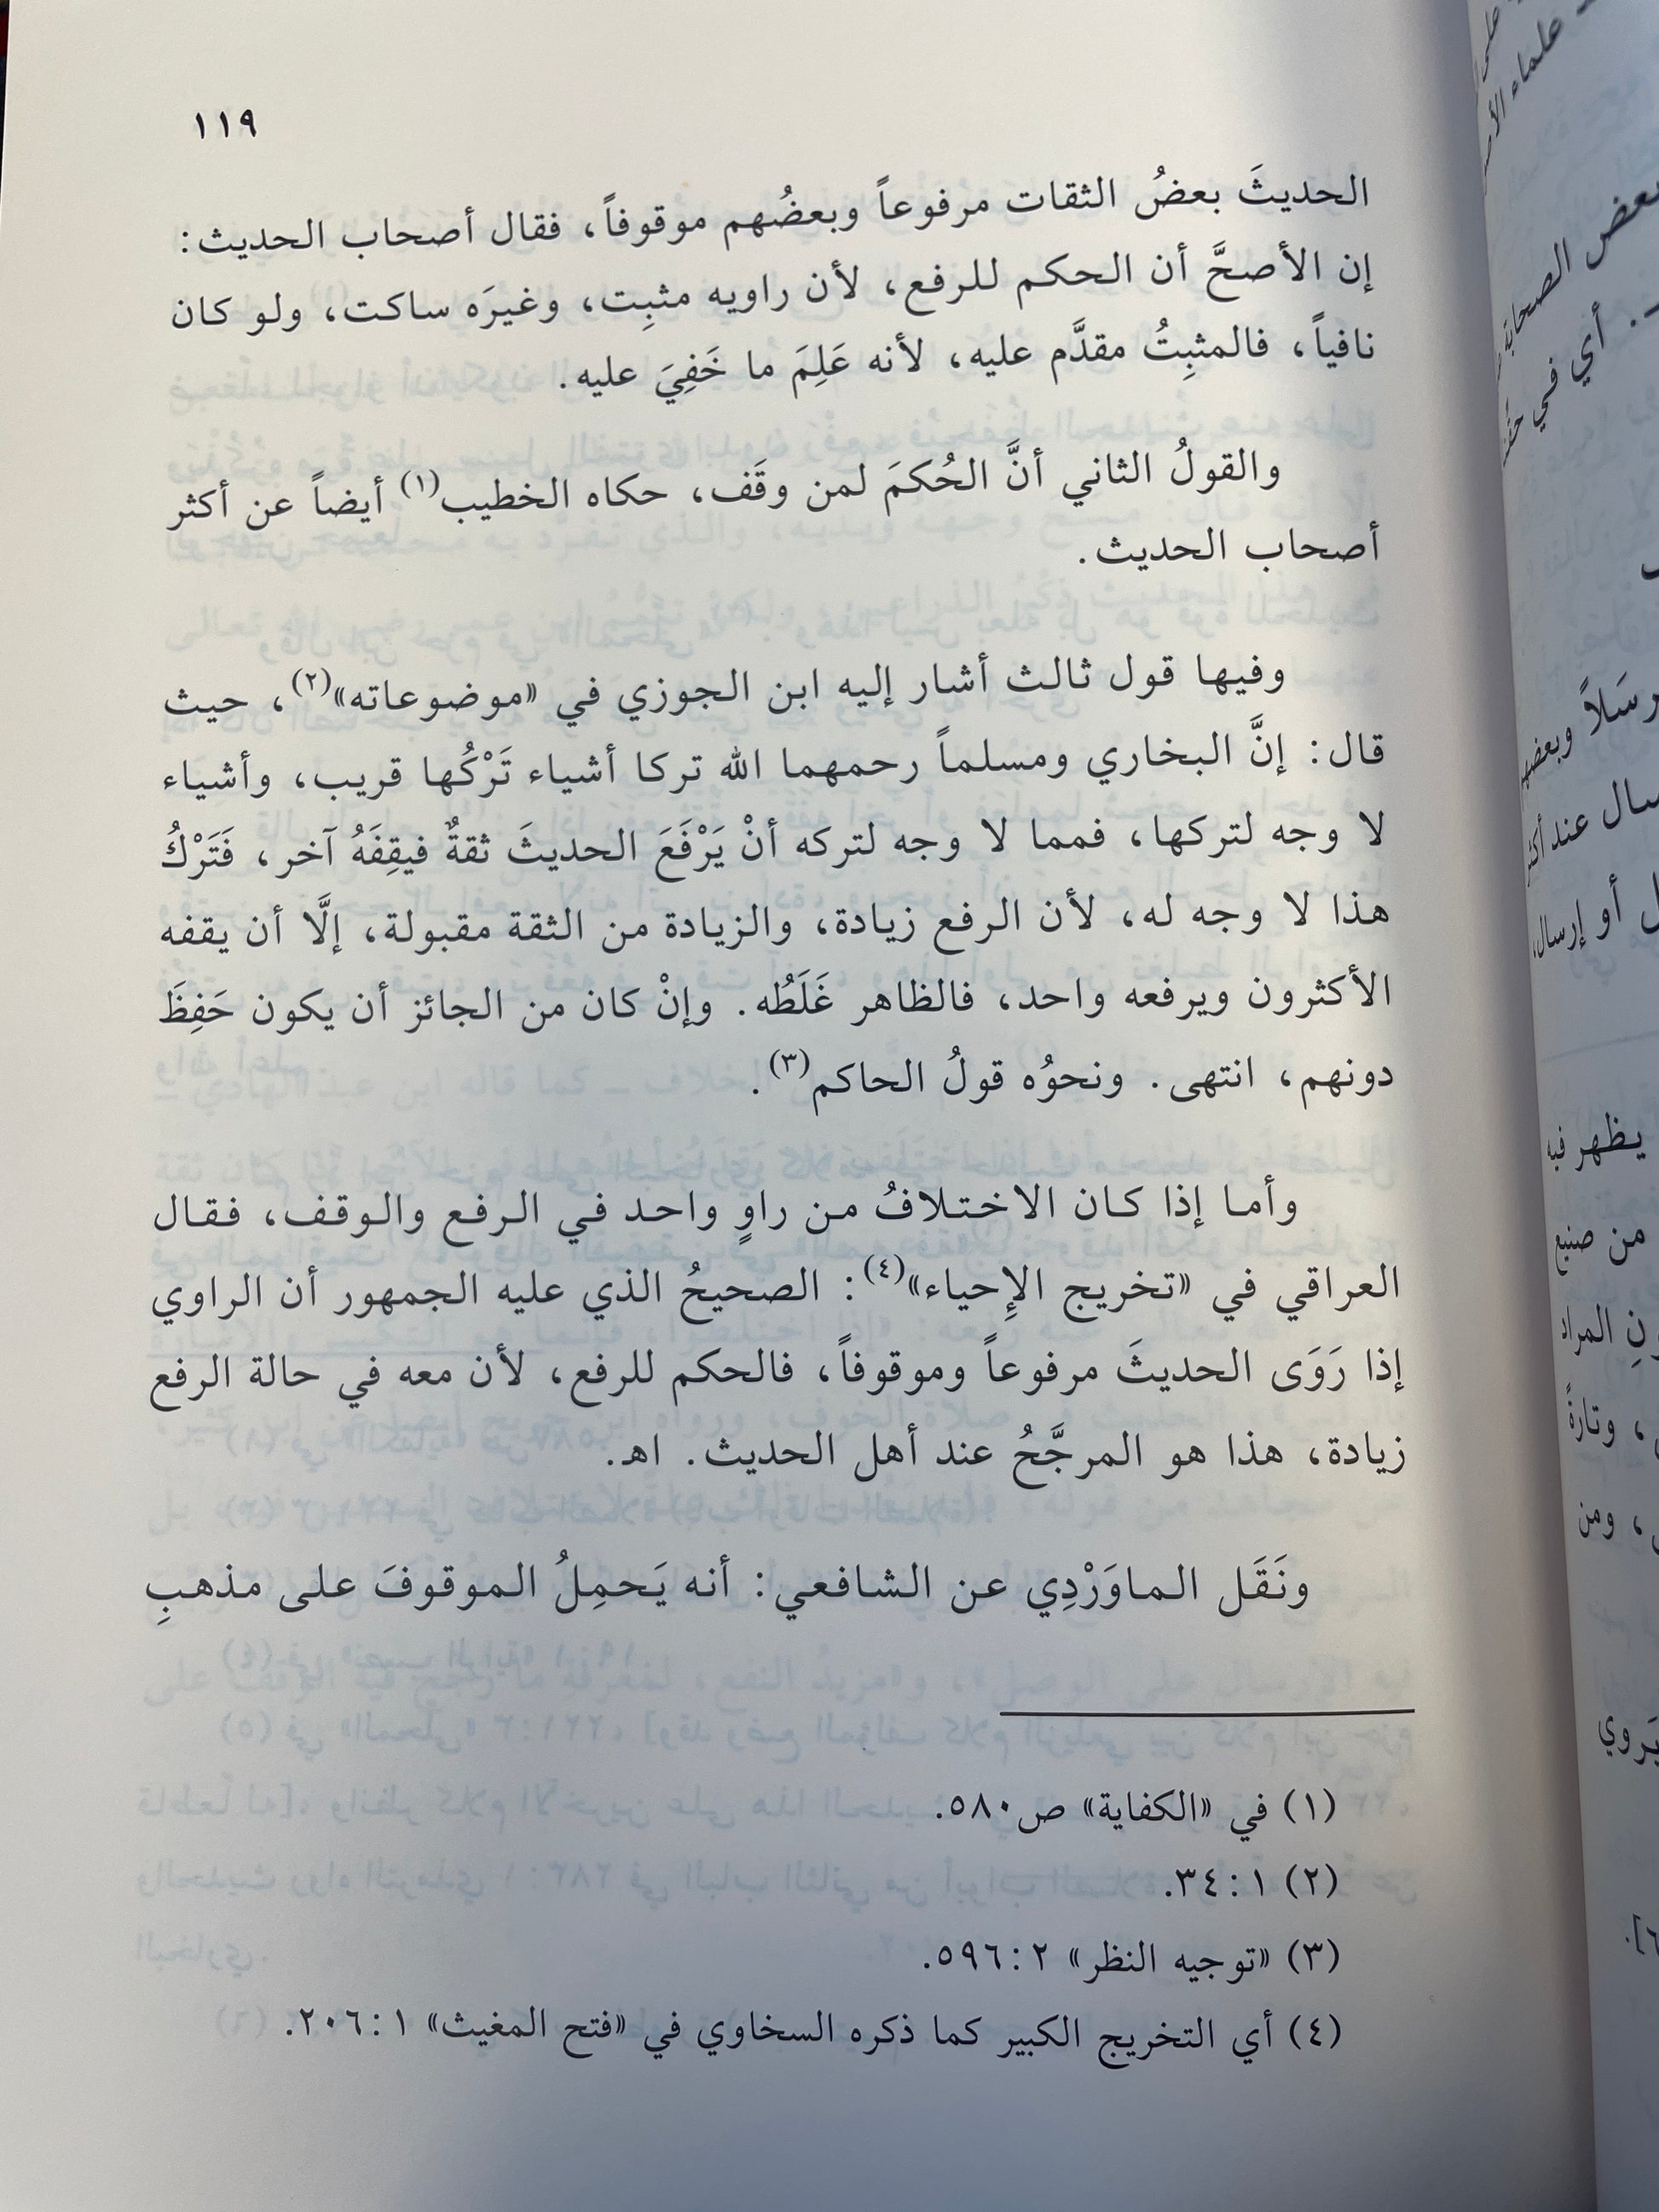 ١١٩
الحديثَ بعضُ الثقات مرفوعاً وبعضُهم موقوفاً، فقال أصحاب الحديث:
إن الأصحَّ أن الحكم للرفع، لأن راويه مثبِت، وغيرَه ساكت، ولو كان
نافياً، فالمثبِتُ مقدَّم عليه، لأنه عَلِمَ ما خَفِيَ عليه.
والقولُ الثاني أنَّ الحُكمَ لمن وقَف، حكاه الخطيب(١) أيضاً عن أكثر
أصحاب الحديث.
وفيها قول ثالث أشار إليه ابن الجوزي في «موضوعاته»(٢)، حيث
قال: إنَّ البخاري ومسلماً رحمهما الله تركا أشياء تَرْكُها قريب، وأشياء
لا وجه لتركها، فمما لا وجه لتركه أنْ يَرْفَعَ الحديثَ ثقةٌ فيقِفَهُ آخر، فَتَرْكُ
هذا لا وجه له، لأن الرفع زيادة، والزيادة من الثقة مقبولة، إلَّا أن يقفه
الأكثرون ويرفعه واحد، فالظاهر غَلَطُه. وإنْ كان من الجائز أن يكون حَفِظَ
دونهم، انتهى. ونحوُه قولُ الحاكم(٣).
وأما إذا كان الاختلافُ من راوٍ واحد في الرفع والوقف، فقال
العراقي في «تخريج الإحياء»(٤): الصحيحُ الذي عليه الجمهور أن الراوي
إذا رَوَى الحديثَ مرفوعاً وموقوفاً، فالحكم للرفع، لأن معه في حالة الرفع
زيادة، هذا هو المرجَّحُ عند أهل الحديث. اهـ.
ونَقَل الماوَرْدِي عن الشافعي: أنه يَحمِلُ الموقوفَ على مذهبِ
(١) في «الكفاية» ص٥٨٠.
(٢) ١:٣٤.
(٣) «توجيه النظر» ٢:٥٩٦.
(٤) أي التخريج الكبير كما ذكره السخاوي في «فتح المغيث» ١:٢٠٦.
علماء
بعض الصحابة
أي في
وبعضهم
عند أكثر
أو إرسال،
يظهر فيه
من صنيع
المراد
، وتارةً
، ومن